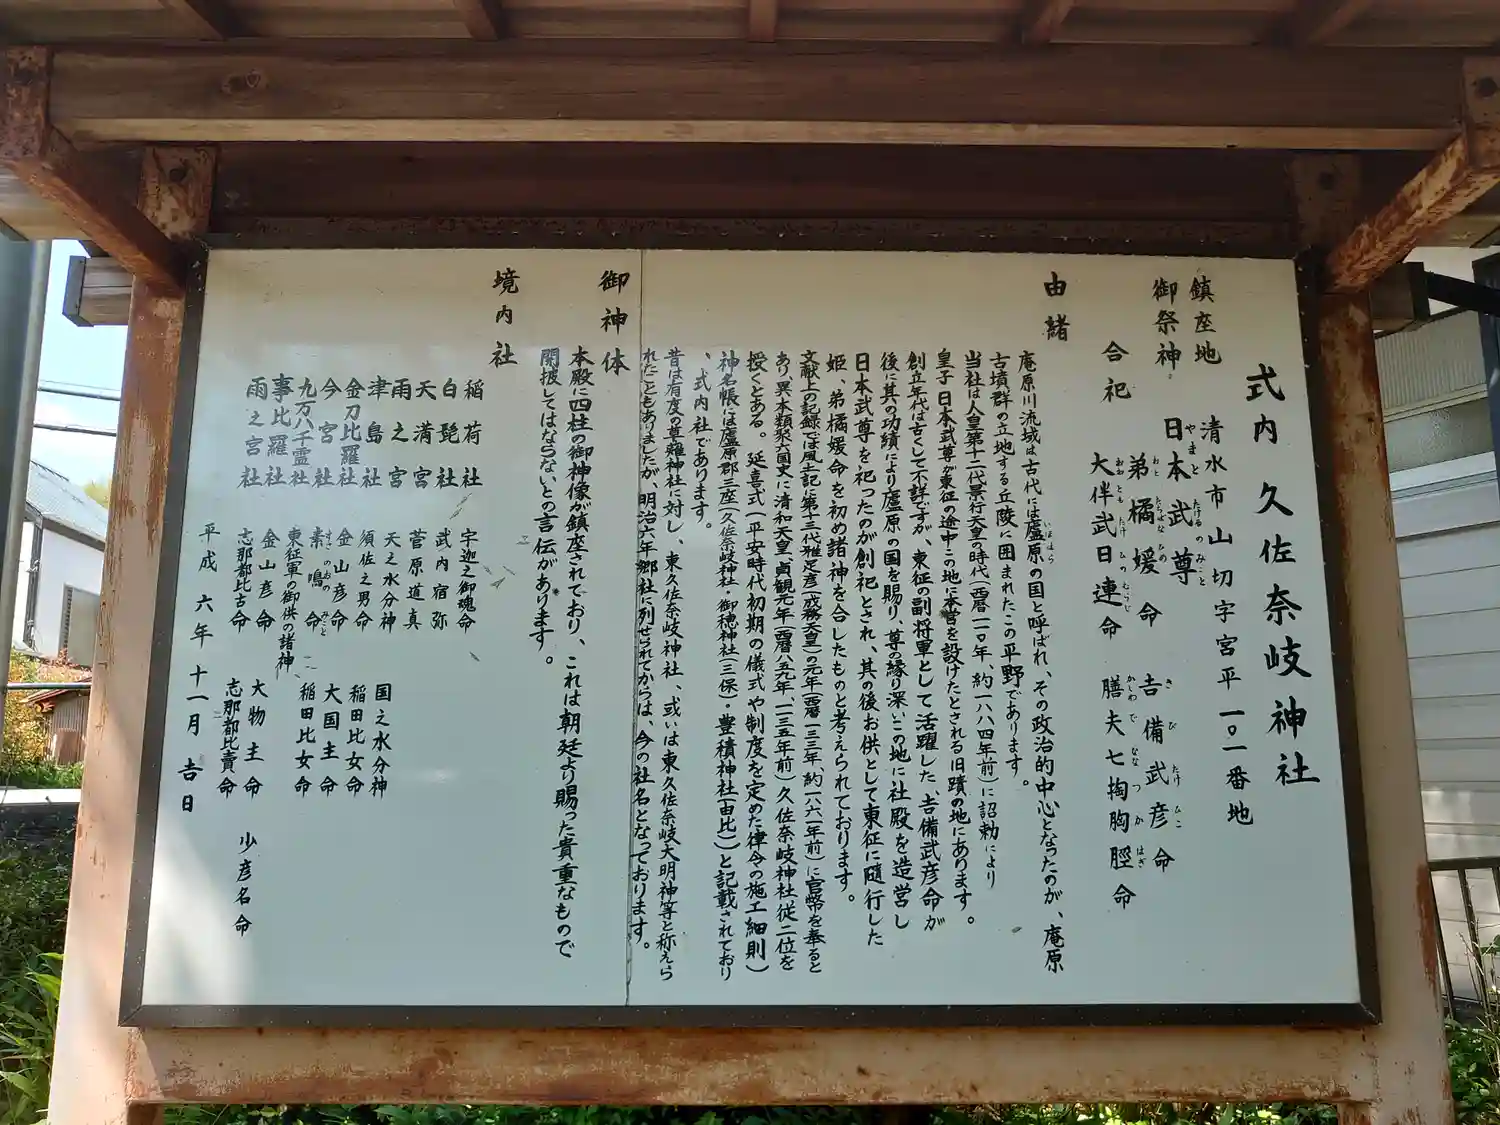 式内久佐奈岐神社
鎮座地
清水市山切字宮平一〇一番地
御祭神
日本武尊
やまと たけるのみこと
合祀
弟橘媛命 吉備武彦命
おと たちばな ひめ き び たけ ひこ
大伴武日連命 膳夫七掬胸脛命
おおとも たけ ひの むらじ かしわで ななつか はぎ
由諸
庵原川流域は古代には廬原の国と呼ばれ、その政治的中心となったのが、庵原
いほはら
古墳群の立地する丘陵に囲まれたこの平野であります。
当社は人皇第十二代景行天皇の時代(西暦一一〇年、約一八八四年前)に詔勅により
皇子日本武尊が東征の途中この地に本営を設けたとされる旧蹟の地にあります。
創立年代は古くして不詳ですが、東征の副将軍として活躍した、吉備武彦命が
後に其の功績により廬原の国を賜り、尊の縁り深いこの地に社殿を造営し
日本武尊を祀ったのが創祀とされ、其の後お供として東征に随行した
姫、弟橘媛命を初め諸神を合したものと考えられております。
文献上の記録では風土記に第十三代雅足彦(成務天皇)の元年(西暦一三三年、約一八六一年前)に官幣を奉ると
あり異本類聚六国史に清和天皇、貞観元年(西暦八五九年、一一三五年前)久佐奈岐神社従二位を
授くとある。延喜式(平安時代初期の儀式や制度を定めた律令の施工細則)
神名帳には廬原郡三座(久佐奈岐神社・御穂神社(三保)・豊積神社(由比))と記載されており
、式内社であります。
昔は有度の草薙神社に対し、東久佐奈岐神社、或いは東久佐奈岐大明神等と称えら
れたこともありましたが、明治六年郷社に列せられてからは、今の社名となっております。
御神体
本殿に四柱の御神像が鎮座されており、これは朝廷より賜った貴重なもので
開扱してはならないとの言伝があります。
境内社
稲荷社 宇迦之御魂命
白髭社 武内宿弥
天満宮 菅原道真
雨之宮 天之水分神 国之水分神
津島社 須佐之男命 稲田比女命
金刀比羅社 金山彦命 大国主命
今宮社 素鳴命 稲田比女命
すさのおの みこと
九万八千霊社 東征軍の御供の諸神
事比羅社 金山彦命 大物主命
雨之宮社 志那都比古命 志那都比賣命 少彦名命
平成六年十一月吉日